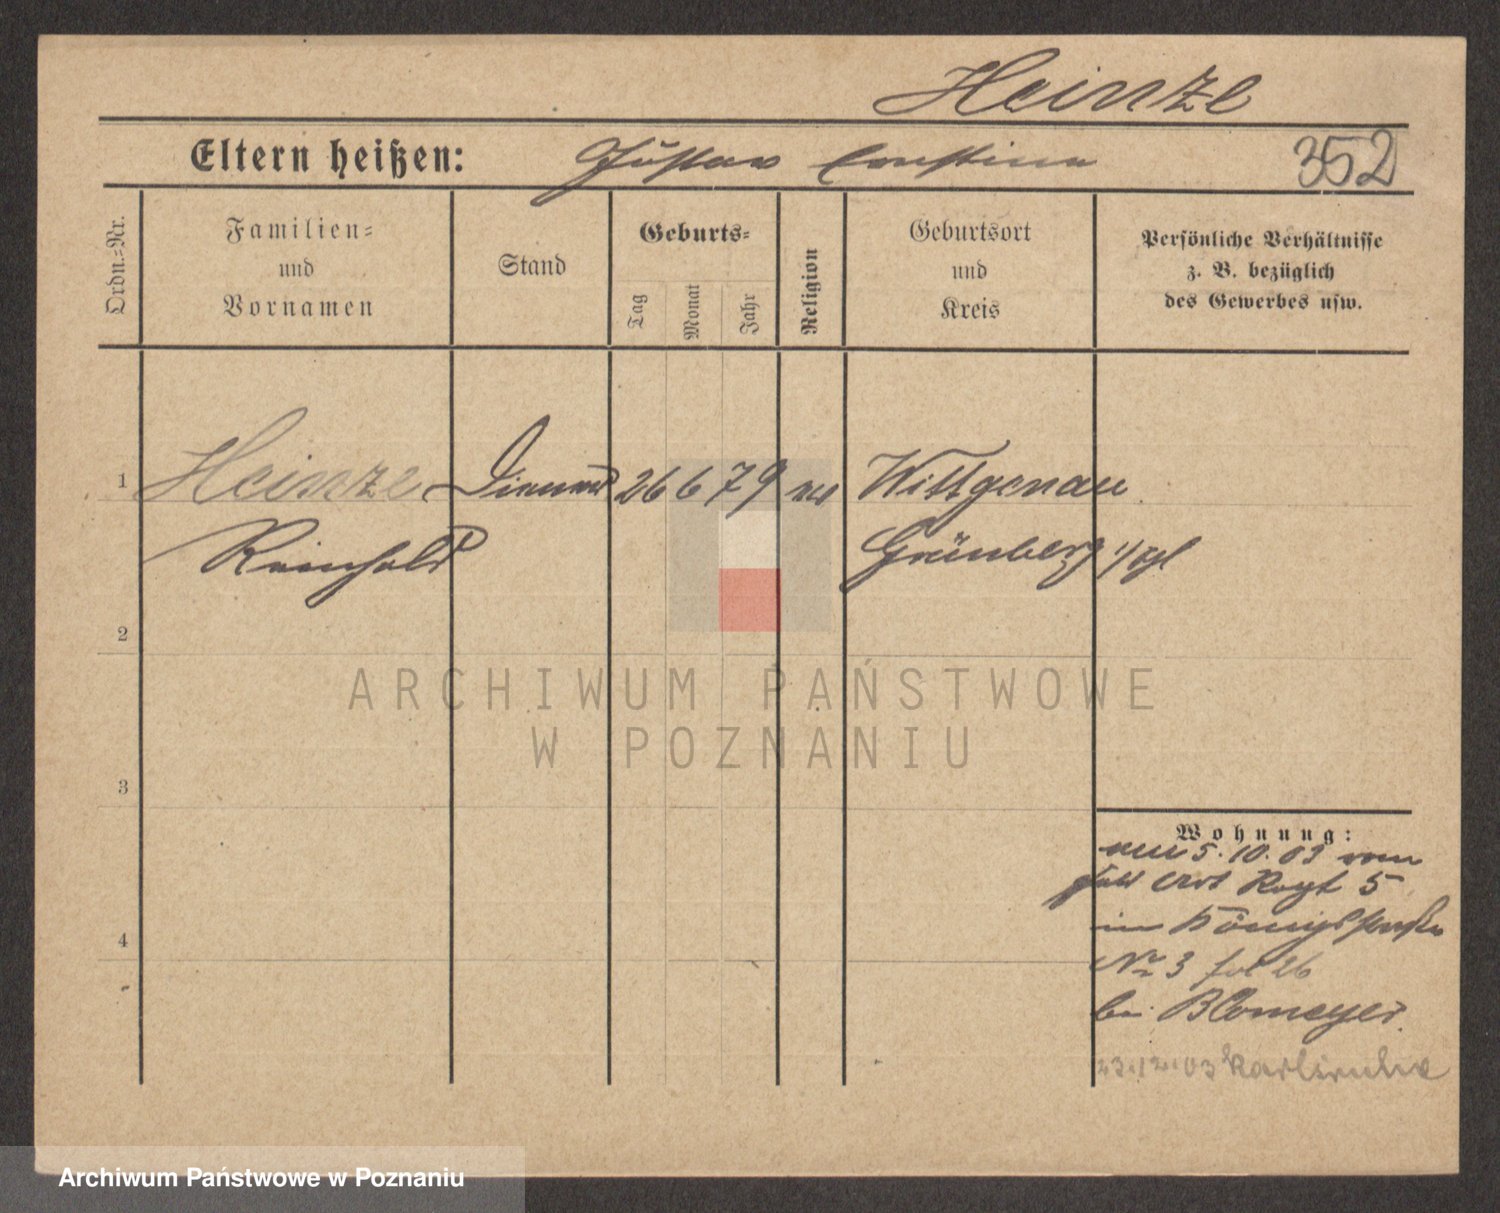 Heinze
Eltern heißen: Gustav Ernstine
352
Ordn.=Nr.
Familien=
und
Vornamen
Stand
Geburts=
Tag
Monat
Jahr
Religion
Geburtsort
und
Kreis
Persönliche Verhältnisse
z. B. bezüglich
des Gewerbes usw.
1 Heinze Diener 26 6 79 Wittgenau
Reinhold Grünberg
2
3
4
ARCHIWUM PAŃSTWOWE
W POZNANIU
Wohnung:
5. 10. 03 vom
Feld Art Regt 5
in Königstraße
No 3
bei Blomeyer
23.12.03 Karlsruhe
Archiwum Państwowe w Poznaniu